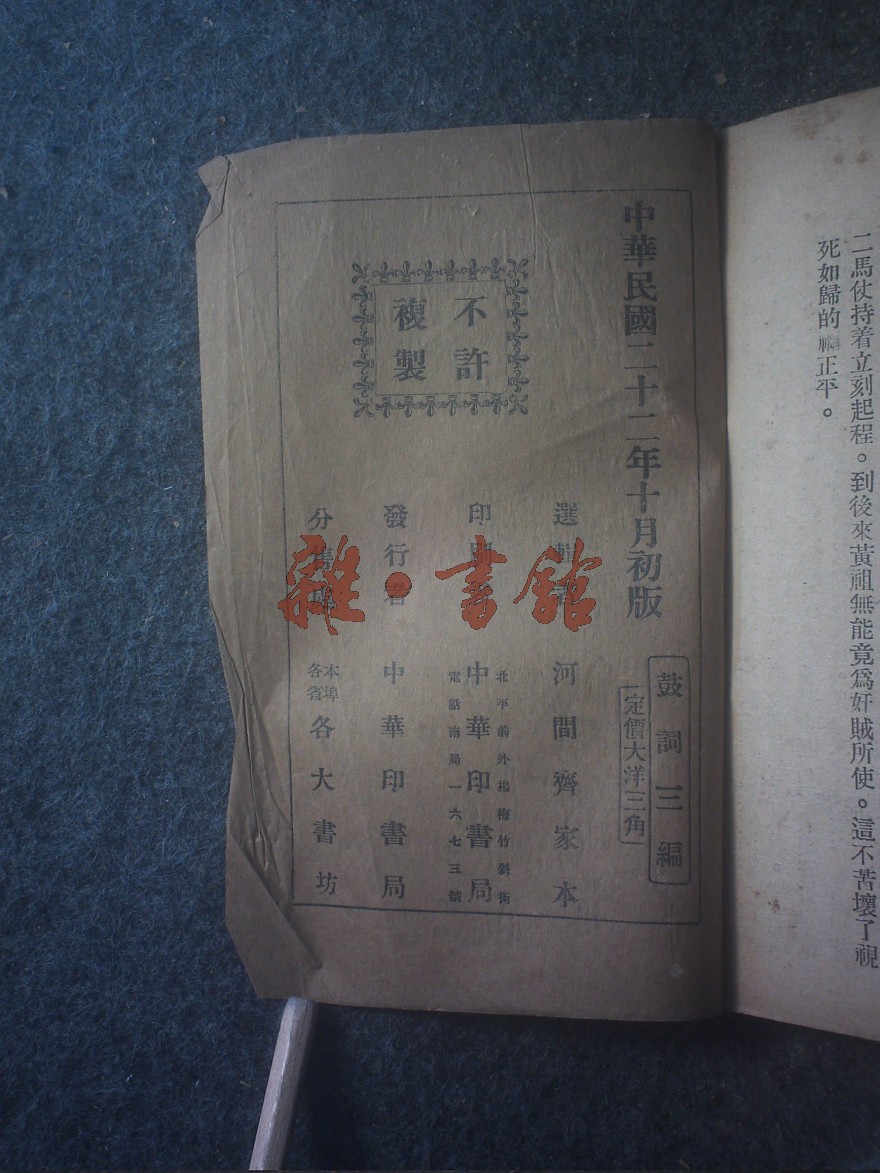 二馬仗持着立刻起程。到後來黃祖無能竟爲奸賊所使。這不苦壞了視
死如歸的禰正平。
中華民國二十二年十月初版
鼓詞三編
定價大洋三角
選輯者 河間齊家本
北平前外楊梅竹斜街
印刷者 中華印書局
電話南局一六七三號
發行者 中華印書局
分售處 本埠各省各大書坊
不許
複製
雜·書館